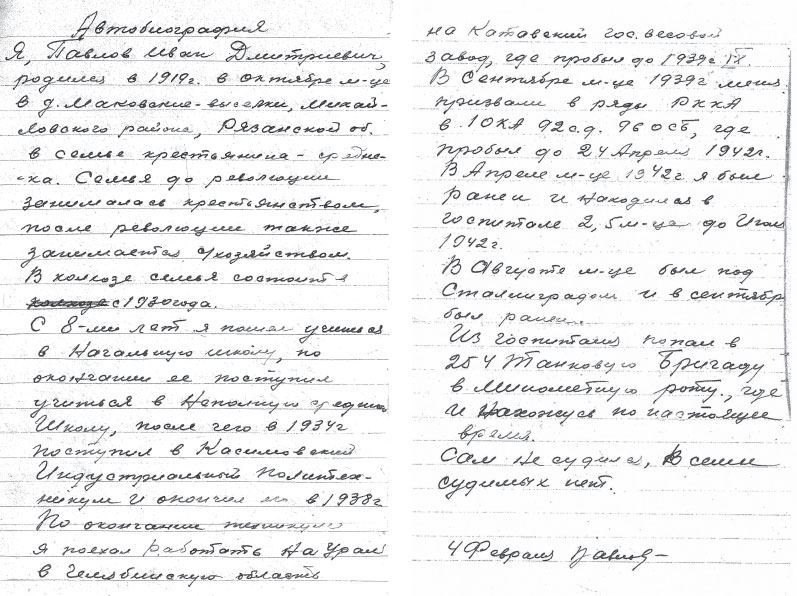 Автобиография
Я, Павлов Иван Дмитриевич,
родился в 1919г. в октябре м-це
в д. Маковские-выселки, Михай-
ловского района, Рязанской об.
в семье крестьянина - середня-
-ка. Семья до революции
занималась крестьянством,
после революции также
занимается с/хозяйством.
В колхозе семья состоит
колхозе с 1930 года.
С 8-ми лет я пошел учиться
в Начальную школу, по
окончании ее поступил
учиться в Неполную среднюю
Школу, после чего в 1934г
поступил в Касимовский
Индустриальный Политех-
никум и окончил его в 1938г
По окончании техникума
я поехал работать на Урал
в Челябинскую область
на Катавский гос. весовой
завод, где пробыл до 1939г IX.
В Сентябре м-це 1939г меня
призвали в ряды РККА
в 1 ОКА 92 с.д. 96 ОСБ, где
пробыл до 24 Апреля 1942г.
В Апреле м-це 1942г я был
ранен и находился в
госпитале 2,5 м-ца до Июля
1942г.
В Августе м-це был под
Сталинградом и в сентябре
был ранен.
Из госпиталя попал в
254 Танковую Бригаду
в Минометную роту, где
и нахожусь по настоящее
время.
Сам не судился, В семье
судимых нет.
4 Февраля Павлов